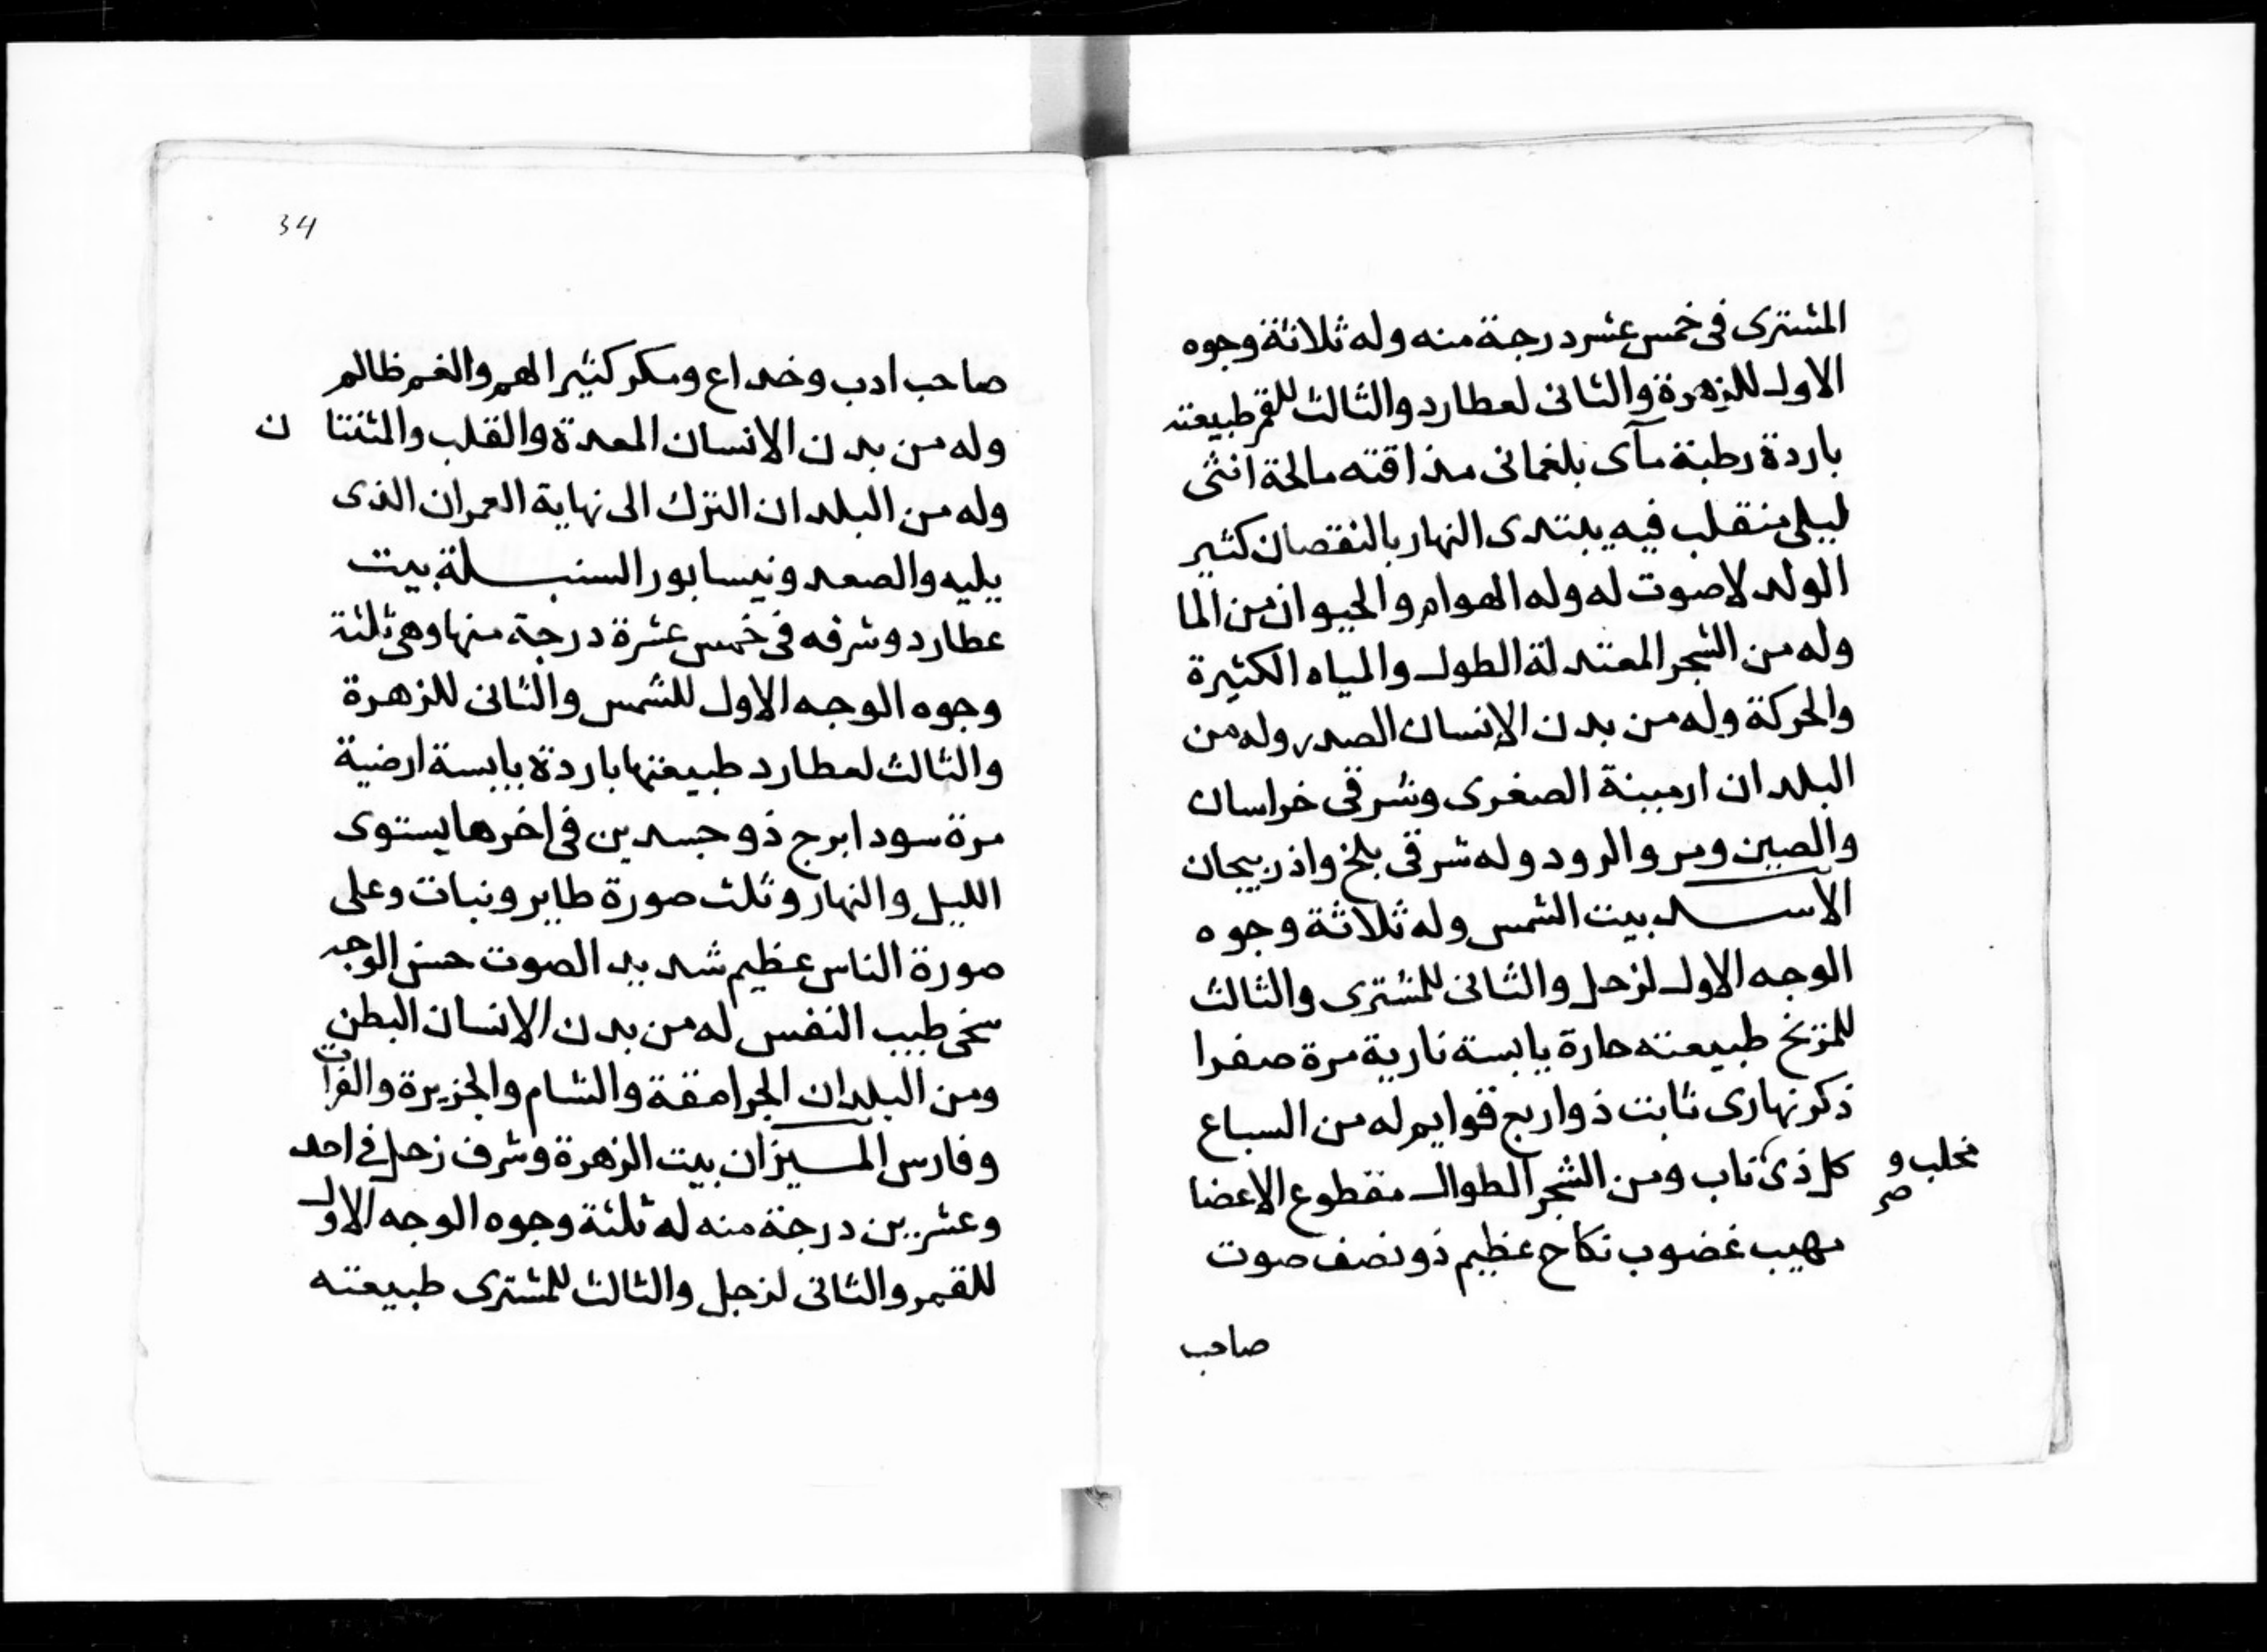 المشترى فى خمس عشر درجة منه وله ثلاثة وجوه
الاول للزهرة والثانى لعطارد والثالث للقمر طبيعته
باردة رطبة مآى بلغمانى مذاقته مالحة انثى
ليلى منقلب فيه يبتدى النهار بالنقصان كثير
الولد لاصوت له وله الهوام والحيوان من الما
وله من الشجر المعتدلة الطول والمياه الكثيرة
والحركة وله من بدن الإنسان الصدر وله من
البلدان ارمينة الصغرى وشرقى خراسان
والصين ومرو الرود وله شرقى بلخ واذربيجان
الأسد بيت الشمس وله ثلاثة وجوه
الوجه الاول لزحل والثانى للمشترى والثالث
للمريخ طبيعته حارة يابسة نارية مرة صفرا
ذكر نهارى ثابت ذو اربع قوايم له من السباع
كل ذى ناب ومن الشجر الطوال مقطوع الاعضا
مخلب و
صح
مهيب غضوب نكاح عظيم ذو نصف صوت
صاحب
34
صاحب ادب وخداع ومكر كثير الهم والغم ظالم
وله من بدن الانسان المعدة والقلب والمثنتا ن
وله من البلدان الترك الى نهاية العمران الذى
يليه والصعد ونيسابور السنبلة بيت
عطارد وشرفه فى خمس عشرة درجة منها وهى ثلثة
وجوه الوجه الاول للشمس والثانى للزهرة
والثالث لعطارد طبيعتها باردة يابسة ارضية
مرة سودا برج ذو جسدين فى اخرها يستوى
الليل والنهار وثلث صورة طاير ونبات وعلى
صورة الناس عظيم شديد الصوت حسن الوجه
سخى طيب النفس له من بدن الانسان البطن
ومن البلدان الجرامقة والشام والجزيرة والفرات
وفارس الميزان بيت الزهرة وشرف زحل فى احد
وعشرين درجة منه له ثلثة وجوه الوجه الاول
للقمر والثانى لزحل والثالث للمشترى طبيعته